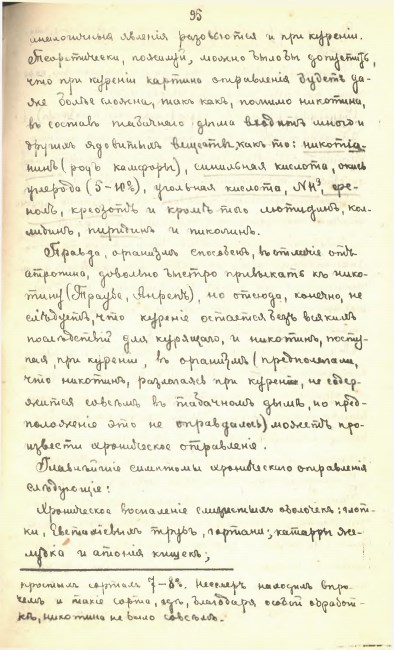 95
аналогичныя явленія разовьются и при куреніи.
Теоретически, пожалуй, можно было бы допустить,
что при куреніи картина отравленія будетъ да-
же болѣе сложна, такъ какъ, помимо никотина,
въ составъ табачнаго дыма входитъ много и
другихъ ядовитыхъ веществъ, какъ то: никотіа-
нинъ (родъ камфоры), синильная кислота, окись
углерода (5-10%), угольная кислота, NH³, фе-
нолъ, креозотъ и кромѣ того лютидинъ, кол-
лидинъ, пиридинъ и пиколинъ.
Правда, организмъ способенъ, въ отличіе отъ
атропина, довольно быстро привыкать къ нико-
тину (Траубе, Анрепъ), но отсюда, конечно, не
слѣдуетъ, что куреніе остается безъ всякихъ
послѣдствій для курящаго, и никотинъ, посту-
пая, при куреніи, въ организмъ (предполагали,
что никотинъ, разлагаясь при куреніи, не содер-
жится совсѣмъ въ табачномъ дымѣ, но пред-
положеніе это не оправдалось) можетъ про-
извести хроническое отравленіе.
Главнѣйшіе симптомы хроническаго отравленія
слѣдующіе:
Хроническое воспаленіе слизистыхъ оболочекъ: глот-
ки, Евстахіевыхъ трубъ, гортани; катарры же-
лудка и атонія кишекъ;
простымъ сортамъ 7-8%. Несслеръ находилъ впро-
чемъ и такіе сорта, гдѣ, благодаря особой обработ-
кѣ, никотина не было совсѣмъ.